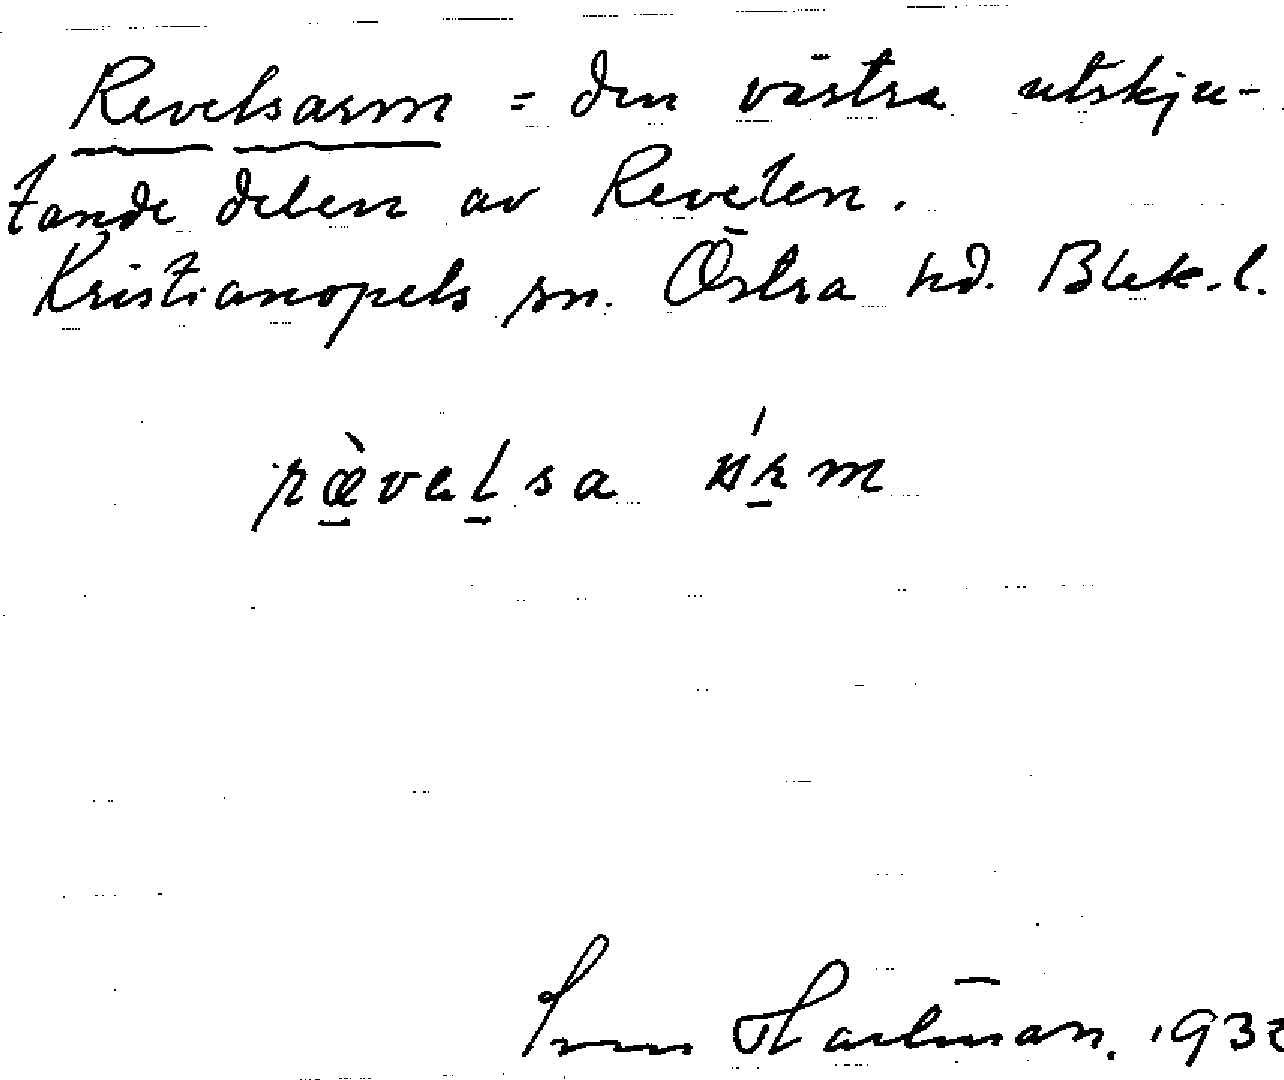 Revelsarm = den västra utskju-
tande delen av Revelen.
Kristianopels sn. Östra hd. Blek. l.
rævelsa arm
Sven Hartman. 1932